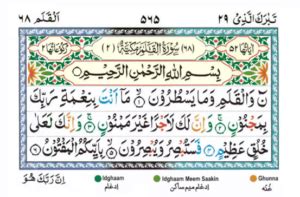 ٦٨ اَلْقَلَم ٥٦٥ تَبٰرَكَ الَّذِىْ ٢٩
اٰيَاتُهَا ٥٢ (٦٨) سُوْرَةُ الْقَلَمِ مَكِّيَّةٌ (٢) رُكُوْعَاتُهَا ٢
بِسْمِ اللهِ الرَّحْمٰنِ الرَّحِيْمِ
نٓ وَالْقَلَمِ وَمَا يَسْطُرُوْنَ ۙ﴿١﴾ مَاۤ اَنْتَ بِنِعْمَةِ رَبِّكَ
بِمَجْنُوْنٍ ۚ﴿٢﴾ وَاِنَّ لَكَ لَاَجْرًا غَيْرَ مَمْنُوْنٍ ۚ﴿٣﴾ وَاِنَّكَ لَعَلٰى
خُلُقٍ عَظِيْمٍ ﴿٤﴾ فَسَتُبْصِرُ وَيُبْصِرُوْنَ ۙ﴿٥﴾ بِاَيِّكُمُ الْمَفْتُوْنُ ﴿٦﴾
اِنَّ رَبَّكَ هُوَ
Idghaam Idghaam Meem Saakin Ghunna
ادغام ادغام میم ساکن غنه